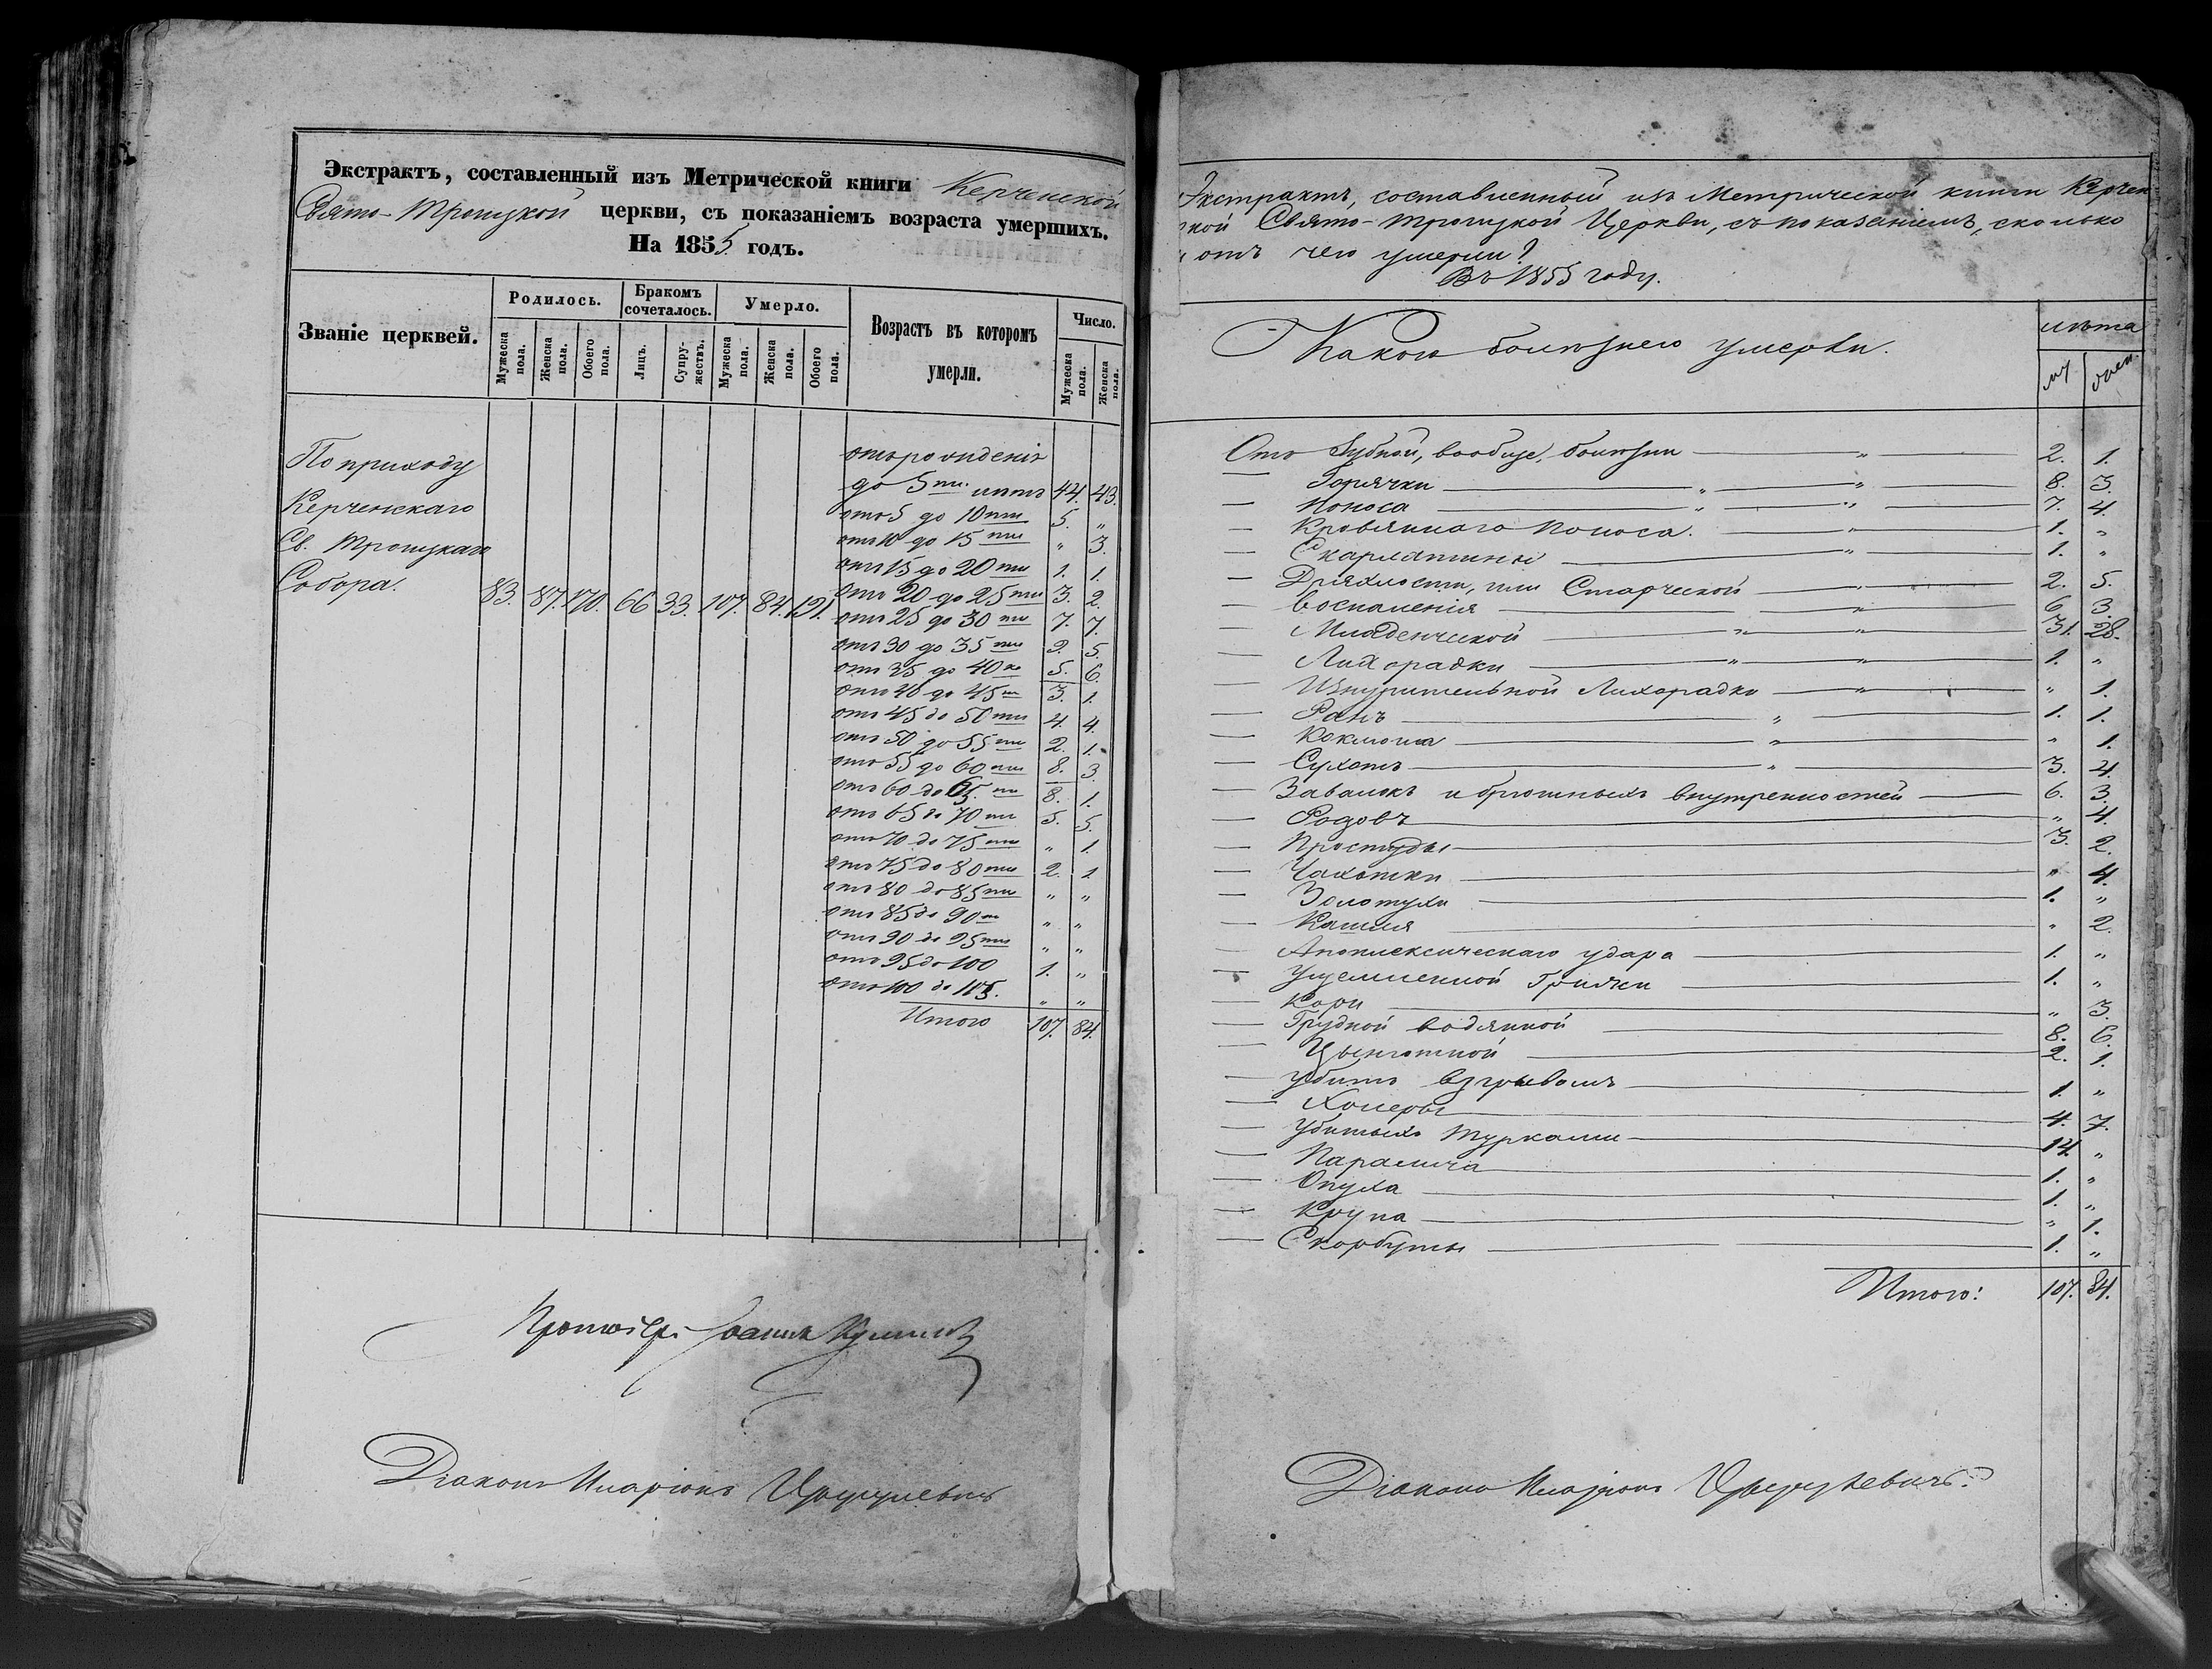 Экстрактъ, составленный изъ Метрической книги Керченской
Свято-Троицкой церкви, съ показаніемъ возраста умершихъ.
На 1855 годъ.
Званіе церквей. Родилось. Бракомъ сочеталось. Умерло. Возрастъ въ которомъ умерли. Число.
Мужеска пола. Женска пола. Обоего пола. Лицъ. Супружествъ. Мужеска пола. Женска пола. Обоего пола. Мужеска пола. Женска пола.
По приходу
Керченскаго
Св. Троицкаго
Собора. 83. 87. 170. 66 33. 107. 84. 191.
отъ рожденія
до 5ти лѣтъ 44. 43.
отъ 5 до 10ти 5. "
отъ 10 до 15ти " 3.
отъ 15 до 20ти 1. 1.
отъ 20 до 25ти 3. 2.
отъ 25 до 30ти 7. 7.
отъ 30 до 35ти 9. 5.
отъ 35 до 40ка 5. 6.
отъ 40 до 45ти 3. 1.
отъ 45 до 50ти 4. 4.
отъ 50 до 55ти 2. 1.
отъ 55 до 60ти 8. 3.
отъ 60 до 65ти 8. 1.
отъ 65 до 70ти 5. 5.
отъ 70 до 75ти " 1.
отъ 75 до 80ти 2. 1
отъ 80 до 85ти " "
отъ 85 до 90ти " "
отъ 90 до 95ти " "
отъ 95 до 100 1. "
отъ 100 до 105. " "
Итого 107. 84.
Протоіер. Іоаннъ
Діаконъ Иларіонъ
Экстрактъ, составленный изъ Метрической книги Керчен
ской Свято-Троицкой Церкви, съ показаніемъ, сколько
и отъ чего умерли?
Въ 1855 году.
Какою болѣзнею умерли. лѣта
му жен.
Отъ Зубной, вообще, болѣзни — " — 2. 1.
— Горячки — " — " — 8. 3.
— Поноса — " — " — 7. 4.
— Кровяннаго Поноса. — " — 1. "
— Скарлатины — " — 1. "
— Дряхлости, или Старческой — " — 2. 5.
— Воспаленія — " — 6. 3
— Младенческой — " — " — 31. 28.
— Лихорадки — " — " — 1. "
— Изнурительной Лихорадки — " — " 1.
— Ранъ — " — 1. 1.
— Коклюша — " — " 1.
— Сухотъ — " — 3. 4.
— Заваловъ и брюшныхъ внутренностей — 6. 3.
— Родовъ — " 4.
— Простуды — 3. 2.
— Чахотки — " 4.
— Золотухи — 1. "
— Кашля — " 2.
— Апоплексическаго удара — 1. "
— Ущемленной Грыжи — 1. "
— Кори — " 3.
— Грудной водянной — 8. 6.
— Цынготной — 2. 1.
— Убитъ взрывомъ — 1. "
— Холеры — 4. 7.
— Убитыхъ Турками — 14. "
— Паралича — 1. "
— Опуха — 1. "
— Крупа — " 1.
— Скорбуты — 1. "
Итого: 107. 84.
Діаконъ Иларіонъ